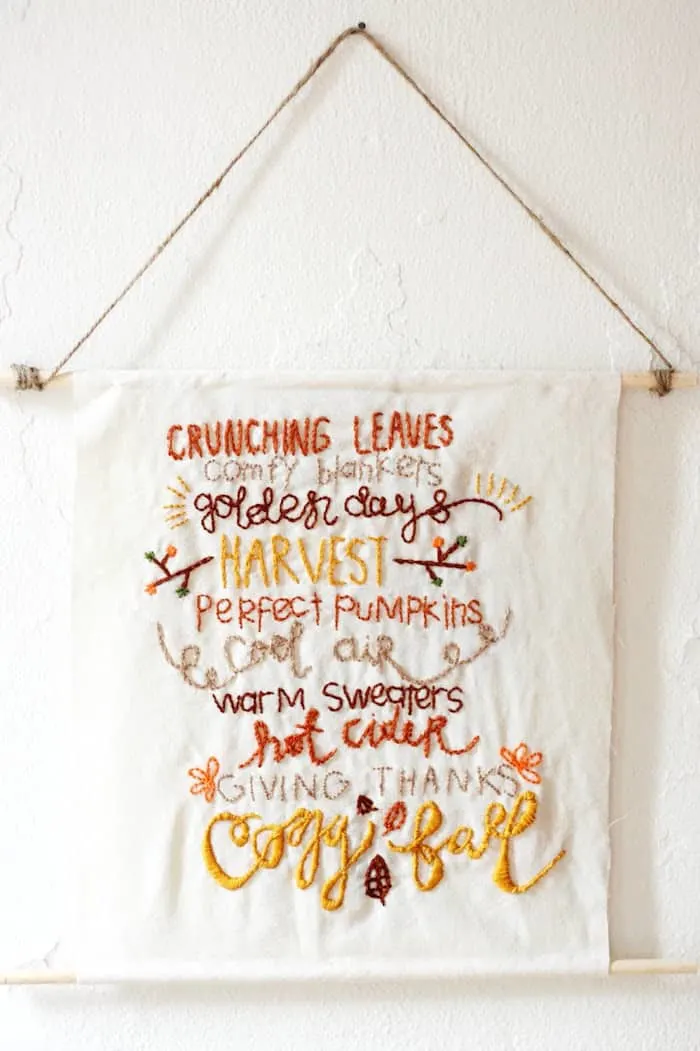 CRUNCHING LEAVES
comfy blankers
golden days
HARVEST
PERFECT PUMPKINS
cool air
warm sweaters
hot cider
GIVING THANKS
Cozy fall